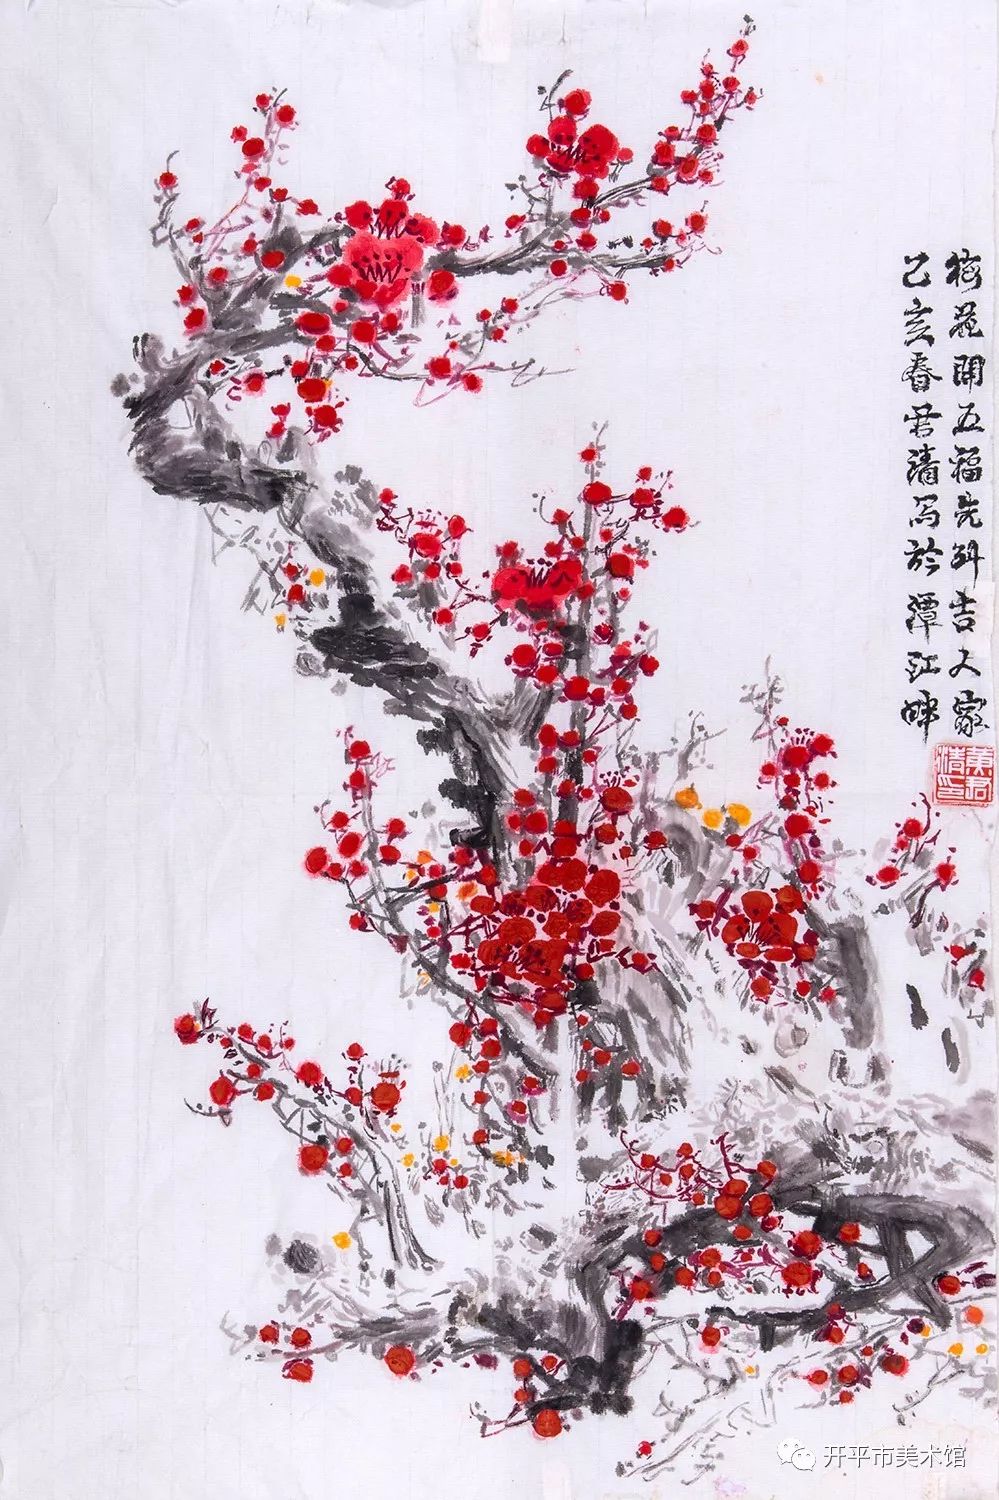 梅花開五福先到吉人家
己亥春君清写於潭江畔
黄君清印
开平市美术馆